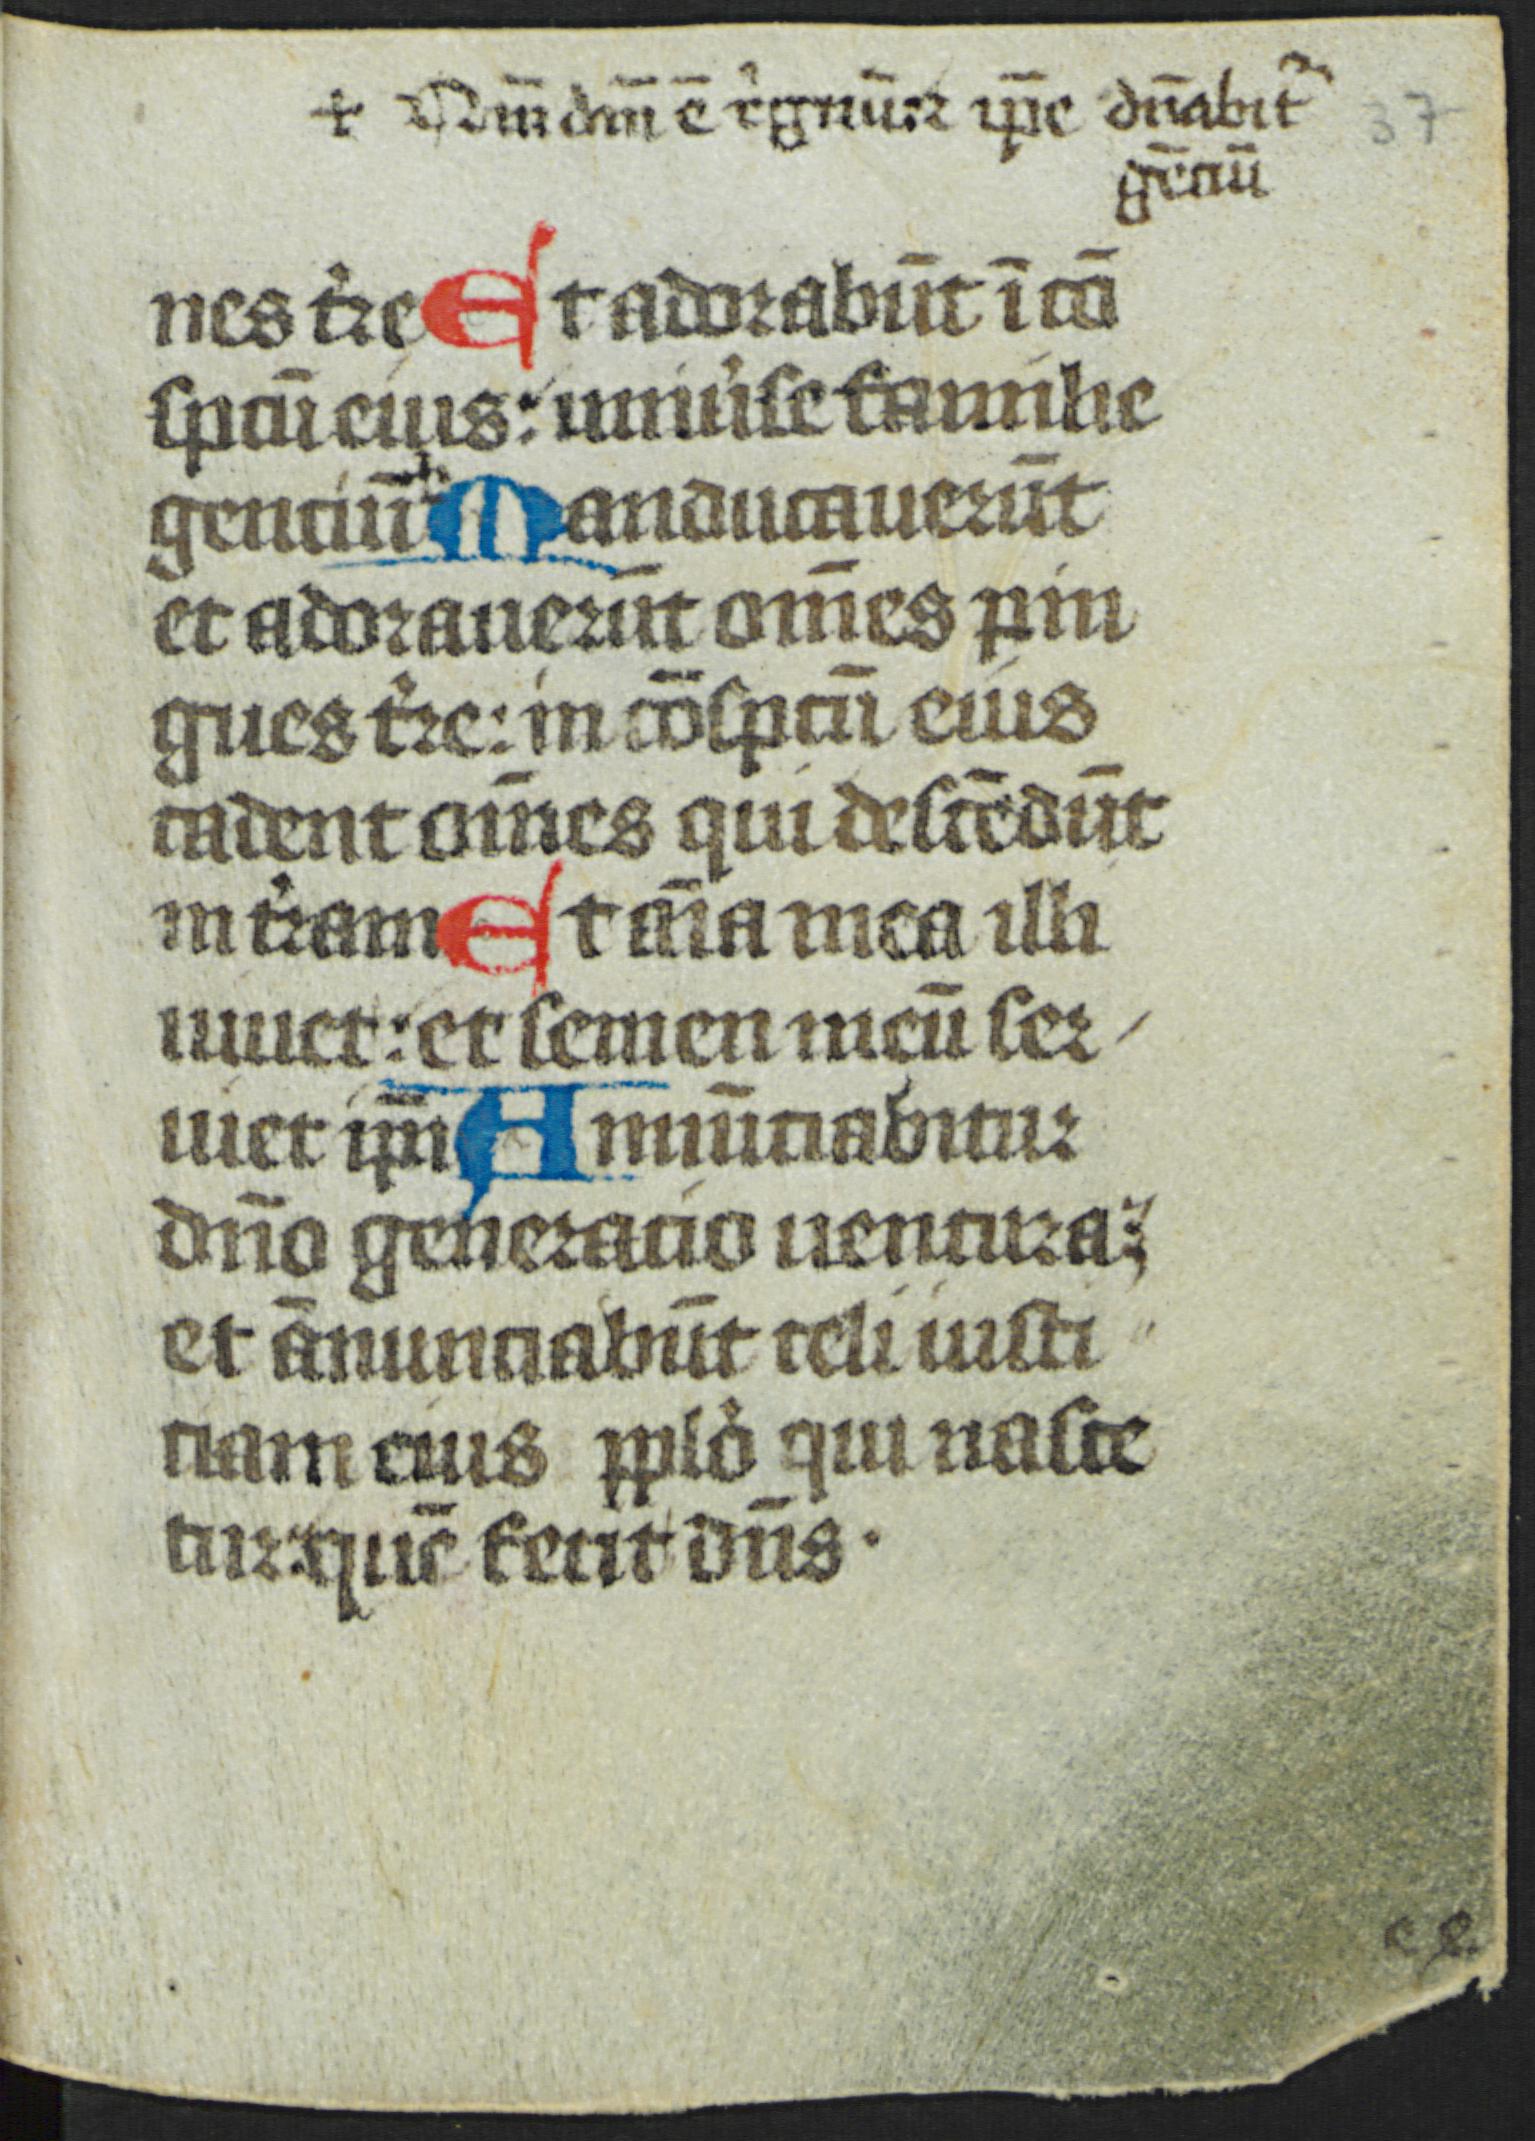 + Qm̄ dm̄ ē rͥgnū: ⁊ ip̄e dn̄abit᷑ 37
gēciū
nes tr̉e Et adorabūt ī cō
spcū eius: uniu̾se familie
genciū Manducauerūt
et adorauerūt om̄es pin
gues tr̉e: in cōspcū eius
cadent om̄es qui descēdūt
in tr̉am Et aīa mea illi
uiuet: et semen meū ser
uiet ip̄i Annūciabitur
dn̄o generacio uentura:
et ānunciabūt celi iusti
ciam eius pplo̾ qui nasce
tur: quē fecit dn̄s.